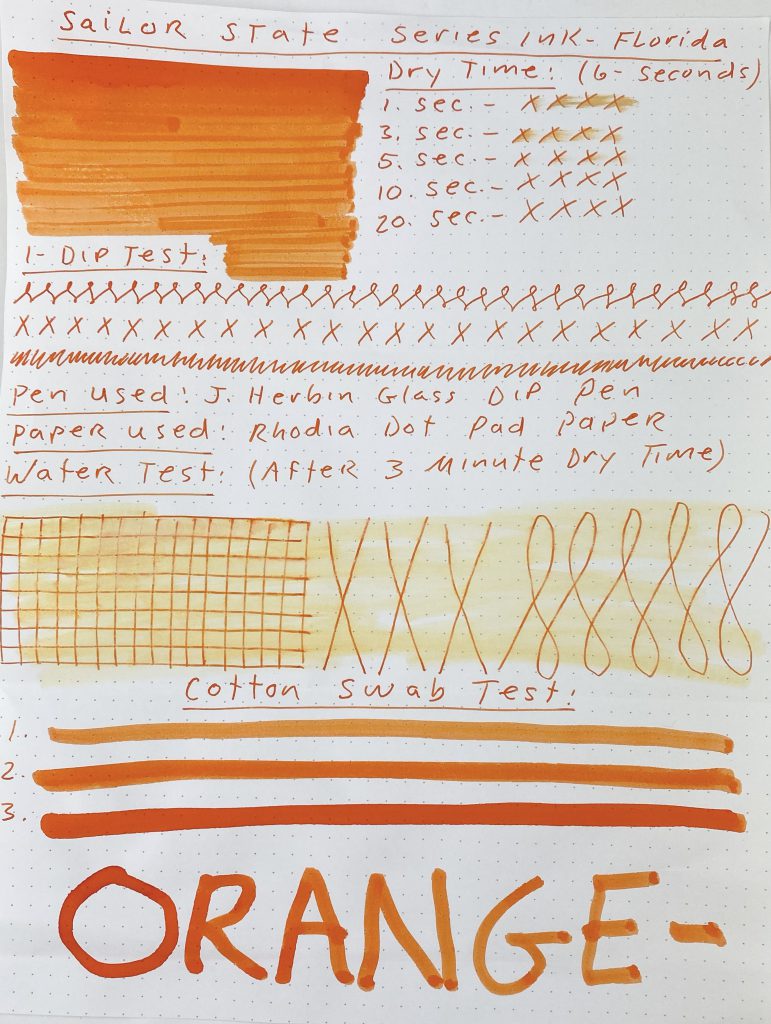 Sailor State Series Ink- Florida
Dry Time: (6-seconds)
1. sec.- x x x x
3. sec.- x x x x
5. sec.- x x x x
10. sec.- x x x x
20. sec.- x x x x
1- Dip Test:
x x x x x x x x x x x x x x x x x x x x x x x x
Pen used: J. Herbin Glass Dip Pen
Paper used: Rhodia Dot Pad Paper
Water Test: (After 3 Minute Dry Time)
Cotton Swab Test:
1.
2.
3.
ORANGE-